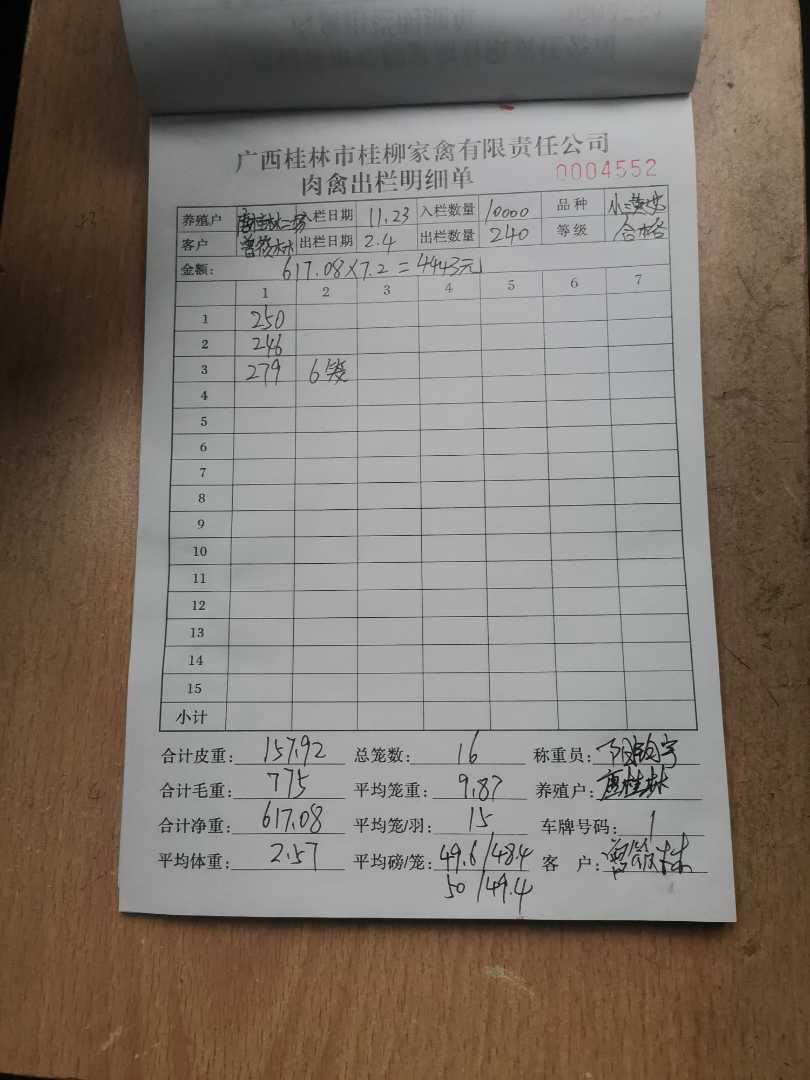 广西桂林市桂柳家禽有限责任公司
肉禽出栏明细单 0004552
养殖户 唐桂林二场 入栏日期 11.23 入栏数量 10000 品种
客户 出栏日期 2.4 出栏数量 240 等级 合格
金额: 617.08×7.2=4443元
1 2 3 4 5 6 7
1 250
2 246
3 279 6笼
4
5
6
7
8
9
10
11
12
13
14
15
小计
合计皮重: 157.92 总笼数: 16 称重员:
合计毛重: 775 平均笼重: 9.87 养殖户: 唐桂林
合计净重: 617.08 平均笼/羽: 15 车牌号码: 1
平均体重: 2.57 平均磅/笼: 49.6/48.4 客 户:
50/49.4